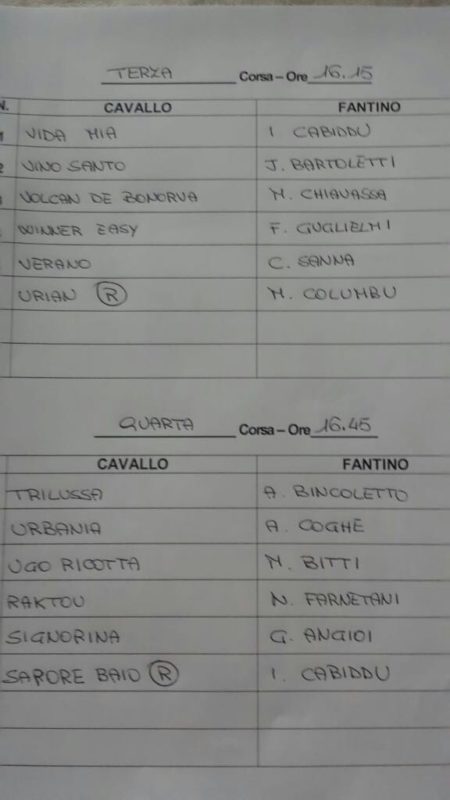 TERZA Corsa – Ore 16.15
N. CAVALLO FANTINO
1 VIDA MIA I CABIDDU
2 VINO SANTO J. BARTOLETTI
VOLCAN DE BONORVA M. CHIAVASSA
WINNER EASY F. GUGLIELMI
VERANO C. SANNA
URIAN R M. COLUMBU
QUARTA Corsa – Ore 16.45
CAVALLO FANTINO
TRILUSSA A. BINCOLETTO
URBANIA A. COGHE
UGO RICOTTA M. BITTI
RAKTOU N. FARNETANI
SIGNORINA G. ANGIOI
SAPORE BAIO R I. CABIDDU